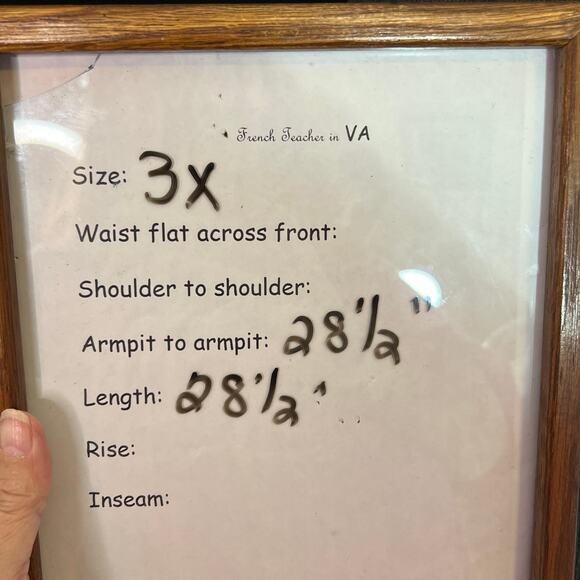 French Teacher in VA
Size: 3X
Waist flat across front:
Shoulder to shoulder:
Armpit to armpit: 28 1/2"
Length: 28 1/2"
Rise:
Inseam: